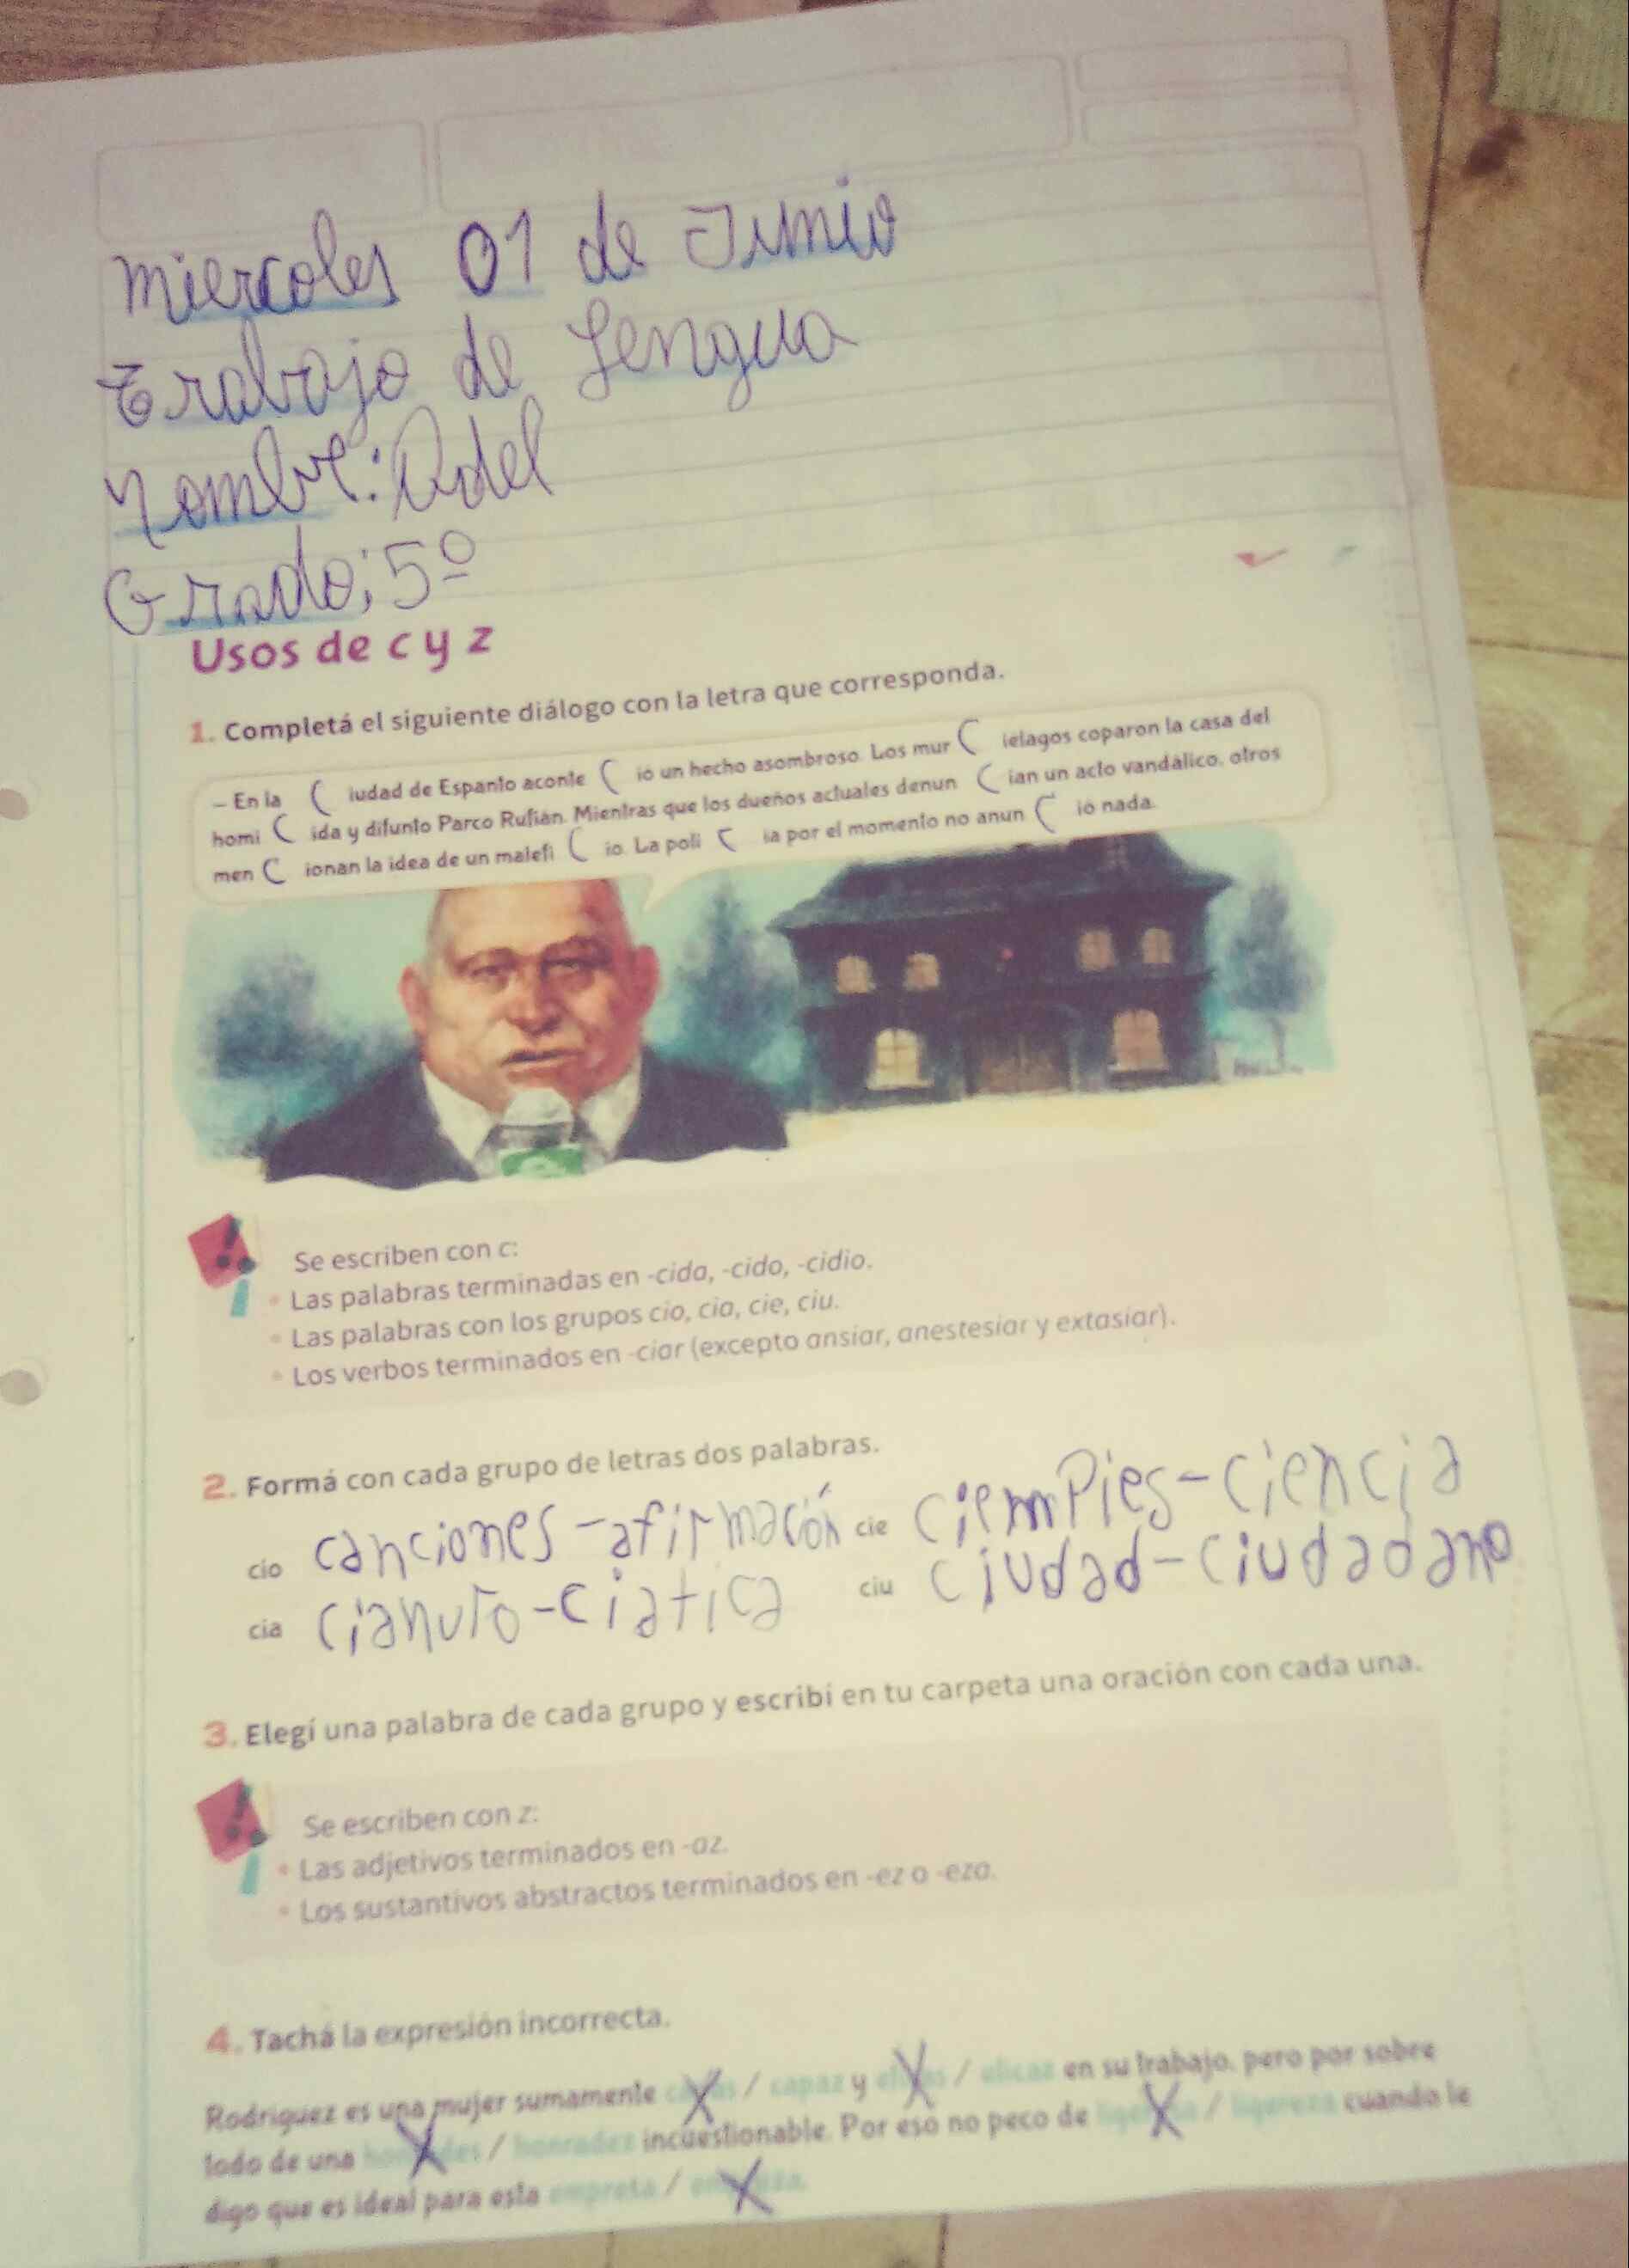 miercoles 01 de Junio
Trabajo de Lengua
Nombre: Adel
Grado: 5º
Usos de c y z
1. Completá el siguiente diálogo con la letra que corresponda.
– En la C iudad de Espanto aconte C ió un hecho asombroso. Los mur C iélagos coparon la casa del
homi C ida y difunto Parco Rufián. Mientras que los dueños actuales denun C ian un acto vandálico, otros
men C ionan la idea de un malefi C io. La poli C ía por el momento no anun C ió nada.
Se escriben con c:
• Las palabras terminadas en -cida, -cido, -cidio.
• Las palabras con los grupos cio, cia, cie, ciu.
• Los verbos terminados en -ciar (excepto ansiar, anestesiar y extasiar).
2. Formá con cada grupo de letras dos palabras.
cio canciones - afirmación cie ciempies - ciencia
cia cianuro - ciatica ciu ciudad - ciudadano
3. Elegí una palabra de cada grupo y escribí en tu carpeta una oración con cada una.
Se escriben con z:
• Las adjetivos terminados en -az.
• Los sustantivos abstractos terminados en -ez o -eza.
4. Tachá la expresión incorrecta.
Rodríguez es una mujer sumamente / capaz y / eficaz en su trabajo, pero por sobre
todo de una / honradez incuestionable. Por eso no peco de / ligereza cuando le
digo que es ideal para esta empresa /